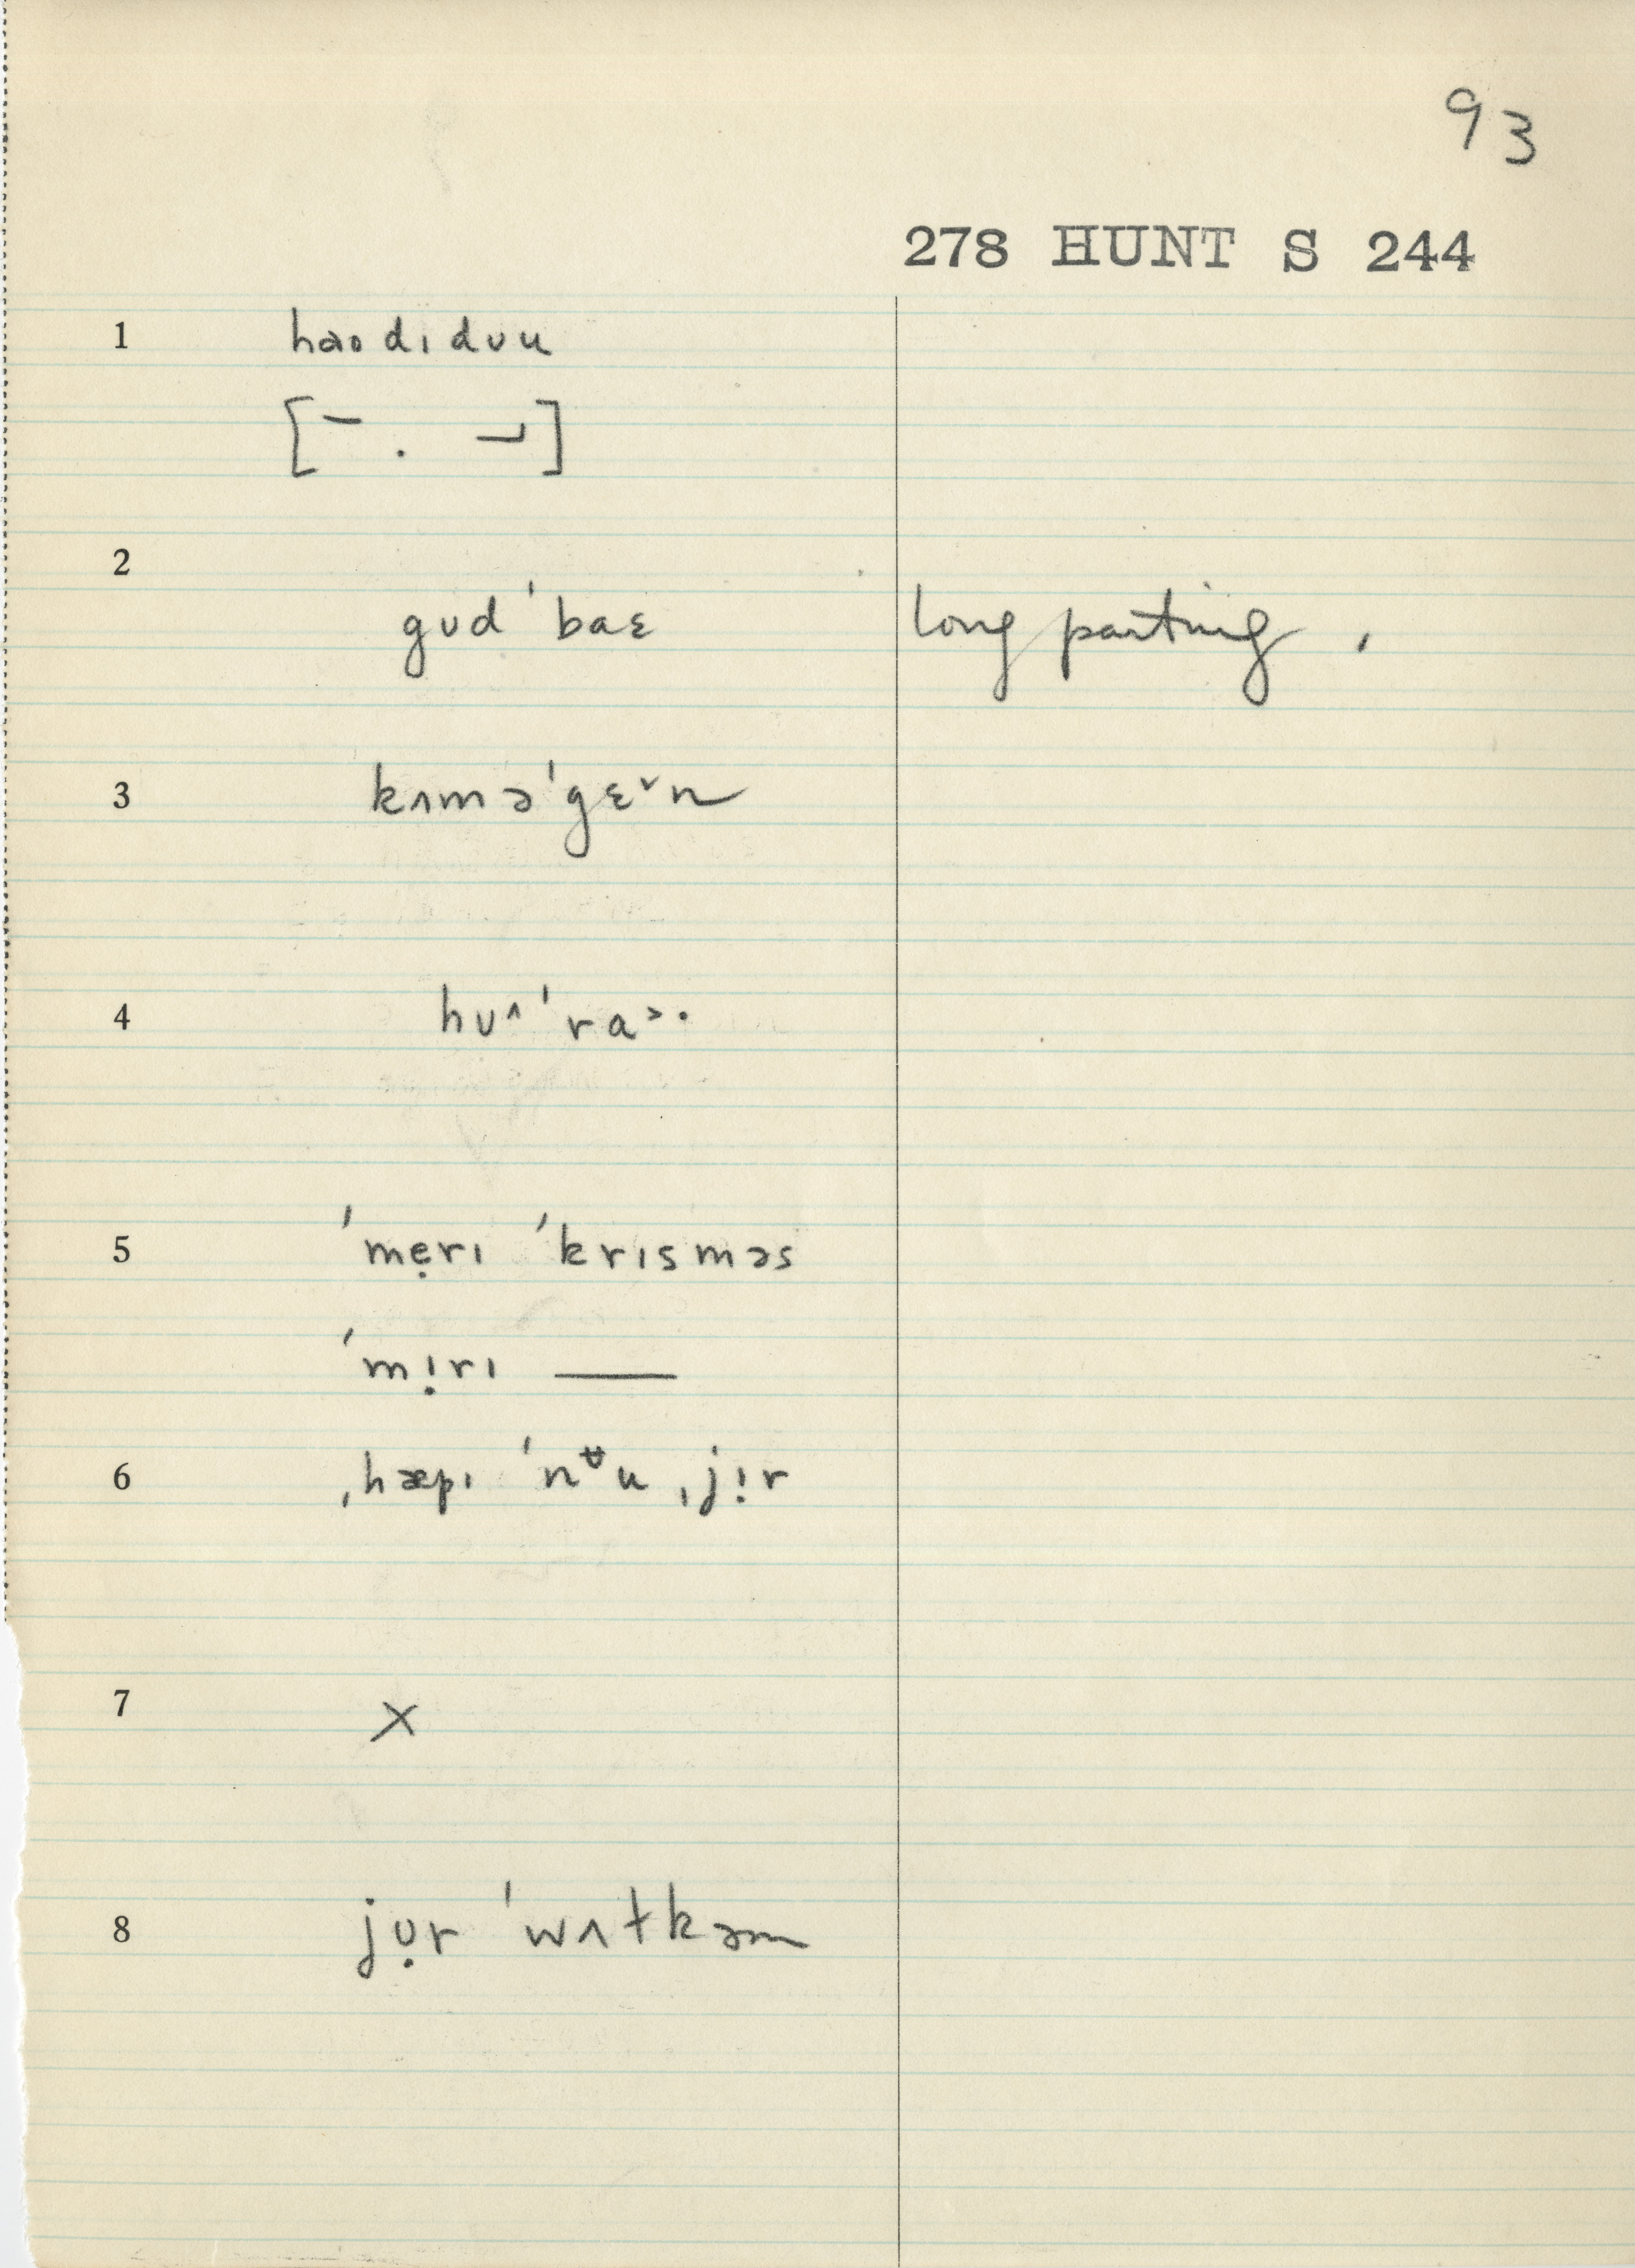 93
278 HUNT S 244
1 haʊdɪdʊu
[¯ . ˗˩]
2
gʊd ˈbaɛ long parting ,
3 kʌməˈgɛ˅n
4 hʊ^ ˈra˃·
5 ˈmẹrɪ ˈkrɪsməs
ˈmɪ̣rɪ ——
6 ˌhæpɪ ˈnᵿu ˌjɪ̣r
7 ×
8 jʊ̣r ˈwʌɫkəm